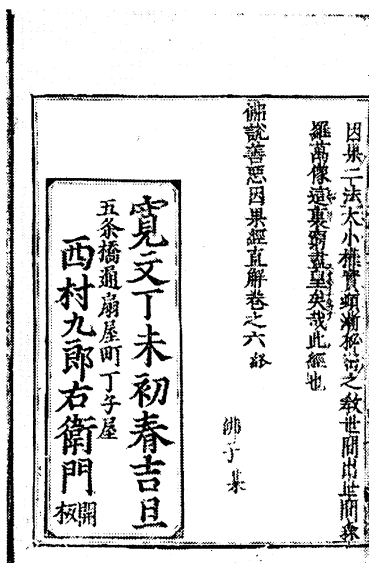 因果二法大小權實頓漸極活之教世間出世間森
羅萬像遠裏窮盡皇矣哉此經也
佛說善惡因果經直解卷之六終
佛子某
寛文丁未初春吉旦
五条橋通扇屋町丁子屋
西村九郎右衛門開板